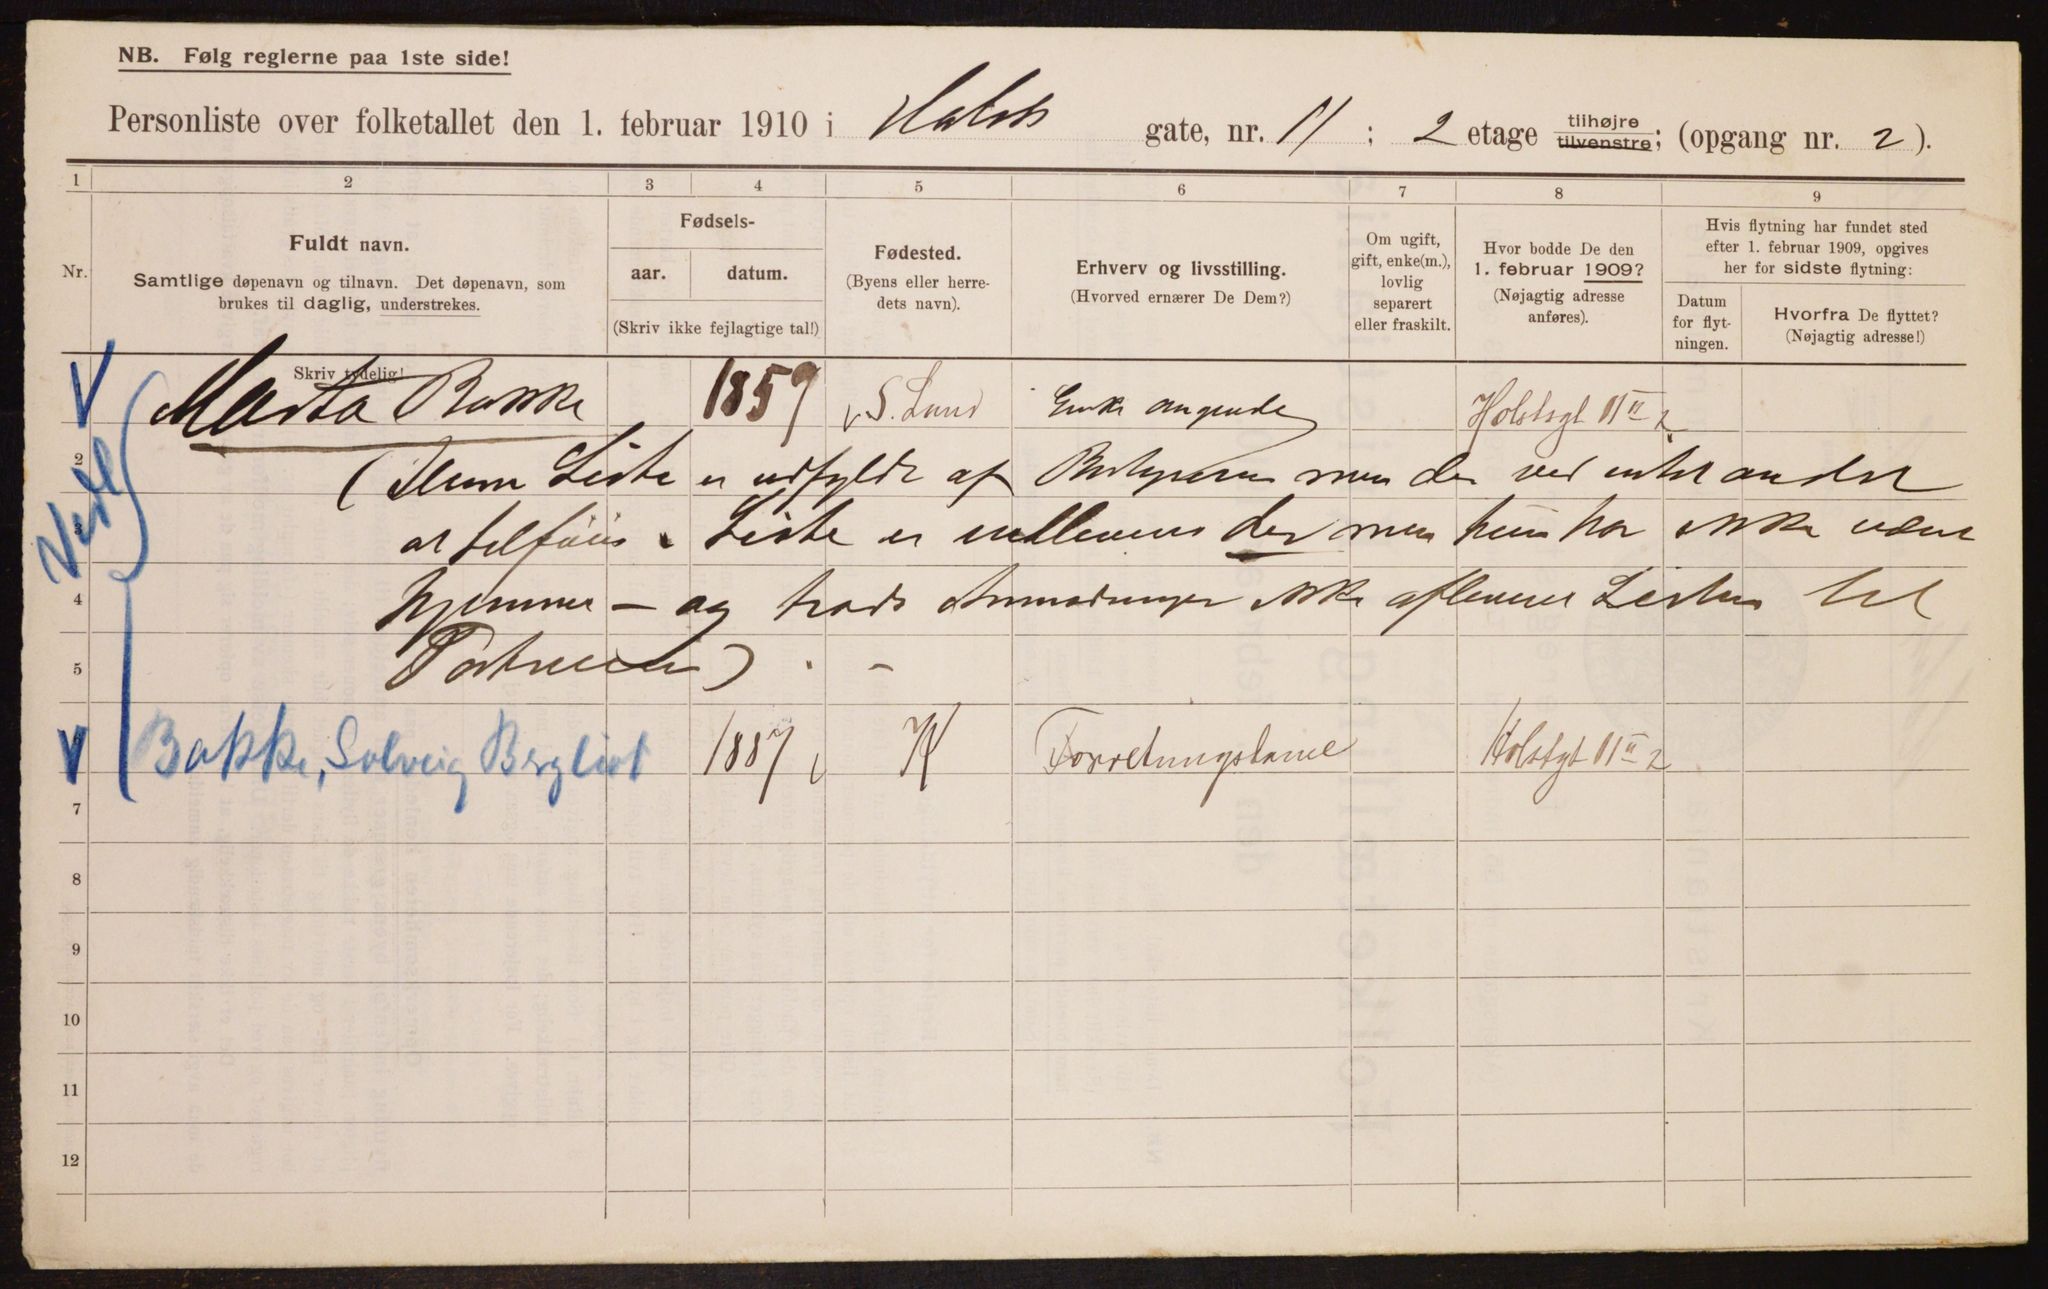 NB. Følg reglerne paa 1ste side!
Personliste over folketallet den 1. februar 1910 i Holsts gate, nr. 11 ; 2 etage tilhøjre tilvenstre; (opgang nr. 2 ).
1 2 3 4 5 6 7 8 9
Nr.
Fuldt navn.
Samtlige døpenavn og tilnavn. Det døpenavn, som
brukes til daglig, understrekes.
Skriv tydelig!
Fødsels-
aar. datum.
(Skriv ikke fejlagtige tal!)
Fødested.
(Byens eller herre-
dets navn).
Erhverv og livsstilling.
(Hvorved ernærer De Dem?)
Om ugift,
gift, enke(m.),
lovlig
separert
eller fraskilt.
Hvor bodde De den
1. februar 1909?
(Nøjagtig adresse
anføres).
Hvis flytning har fundet sted
efter 1. februar 1909, opgives
her for sidste flytning:
Datum
for flyt-
ningen.
Hvorfra De flyttet?
(Nøjagtig adresse!)
V Marta Bakke 1859 v S. Lund Enke Holstsgt 11 II 2
2 (Denne Liste er udfyldt af men der ved intet andet
3 at tilføie. Liste er indleveret der men hun har ikke været
4 hjemme – og trods Anmodninger ikke afleveret Listen til
5 Portneren) . –
V 6 Bakke, Solveig Bergliot 1887 v K Forretningsdame Holstgt 11 II 2
7
8
9
10
11
12